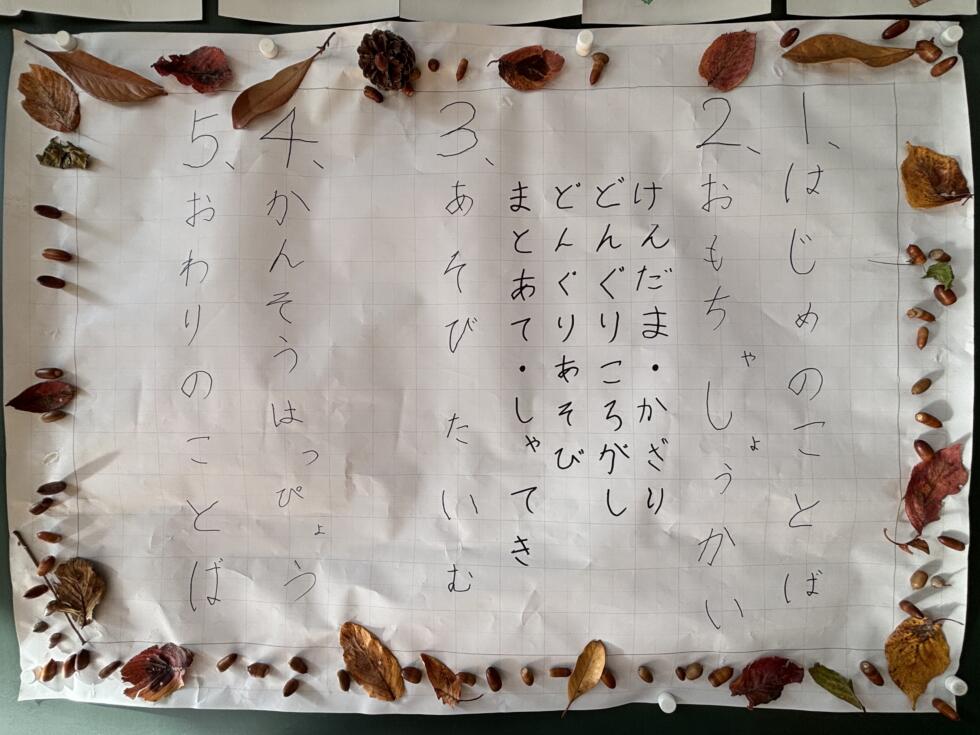 1、はじめのことば
2、おもちゃしょうかい
けんだま・かざり
どんぐりころがし
どんぐりあそび
まとあて・しゃてき
3、あそびたいむ
4、かんそうはっぴょう
5、おわりのことば